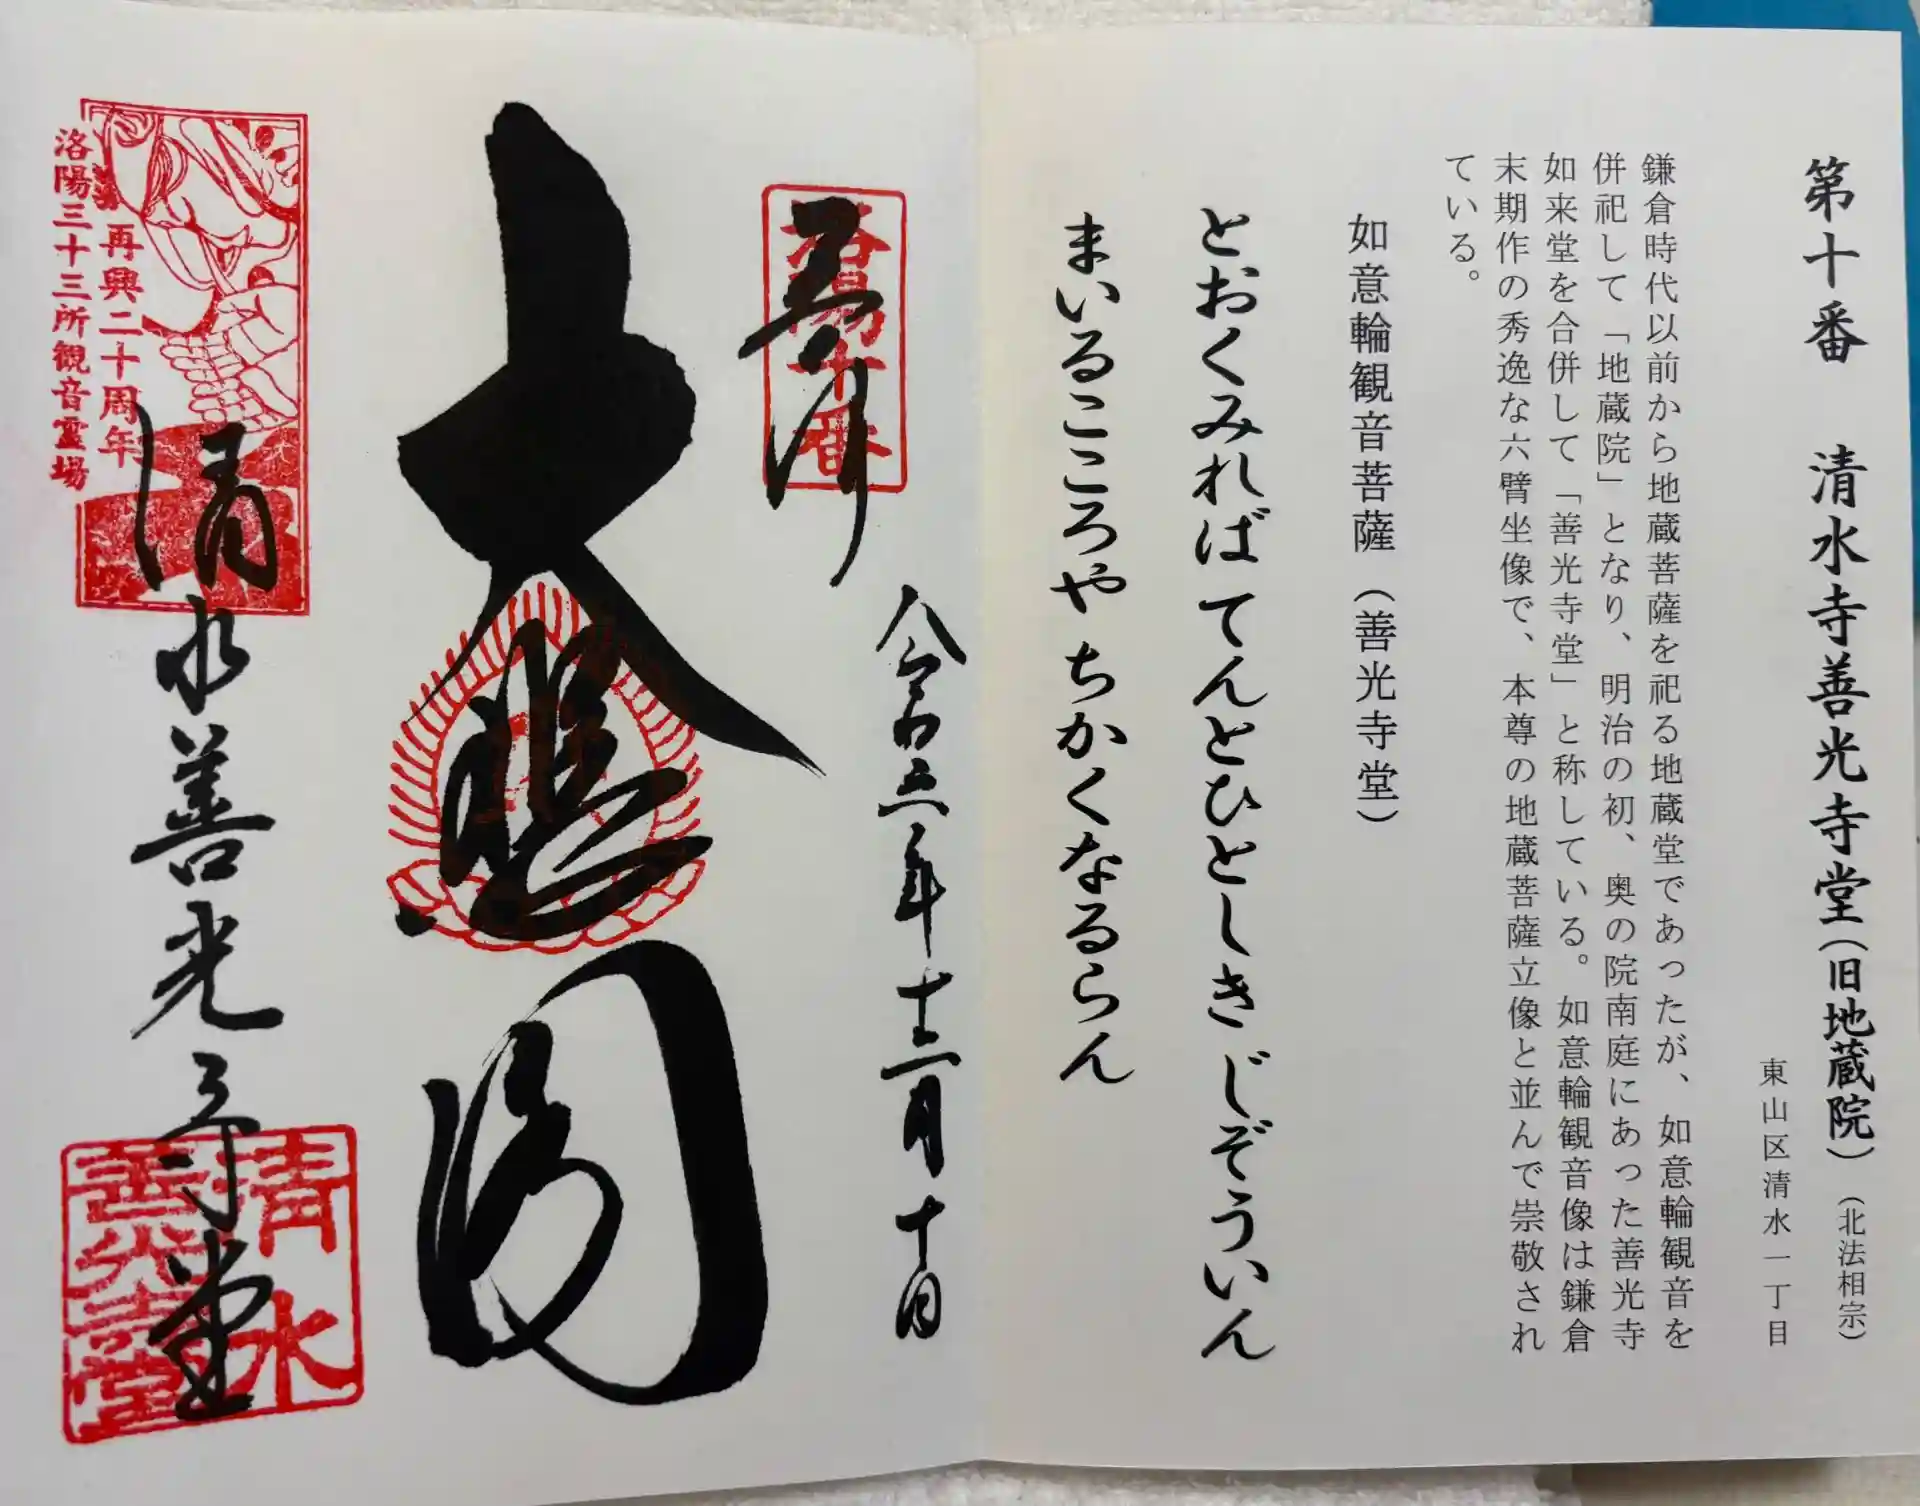 第十番 清水寺善光寺堂（旧地蔵院）（北法相宗）
東山区清水一丁目
鎌倉時代以前から地蔵菩薩を祀る地蔵堂であったが、如意輪観音を
併祀して「地蔵院」となり、明治の初、奥の院南庭にあった善光寺
如来堂を合併して「善光寺堂」と称している。如意輪観音像は鎌倉
末期作の秀逸な六臂坐像で、本尊の地蔵菩薩立像と並んで崇敬され
ている。
如意輪観音菩薩（善光寺堂）
とおくみれば てんとひとしき じぞういん
まいるこころや ちかくなるらん
奉拝
洛陽十番
年十二月十日
大悲閣
再興二十周年
洛陽三十三所観音霊場
清水善光寺堂
清水
善光寺堂